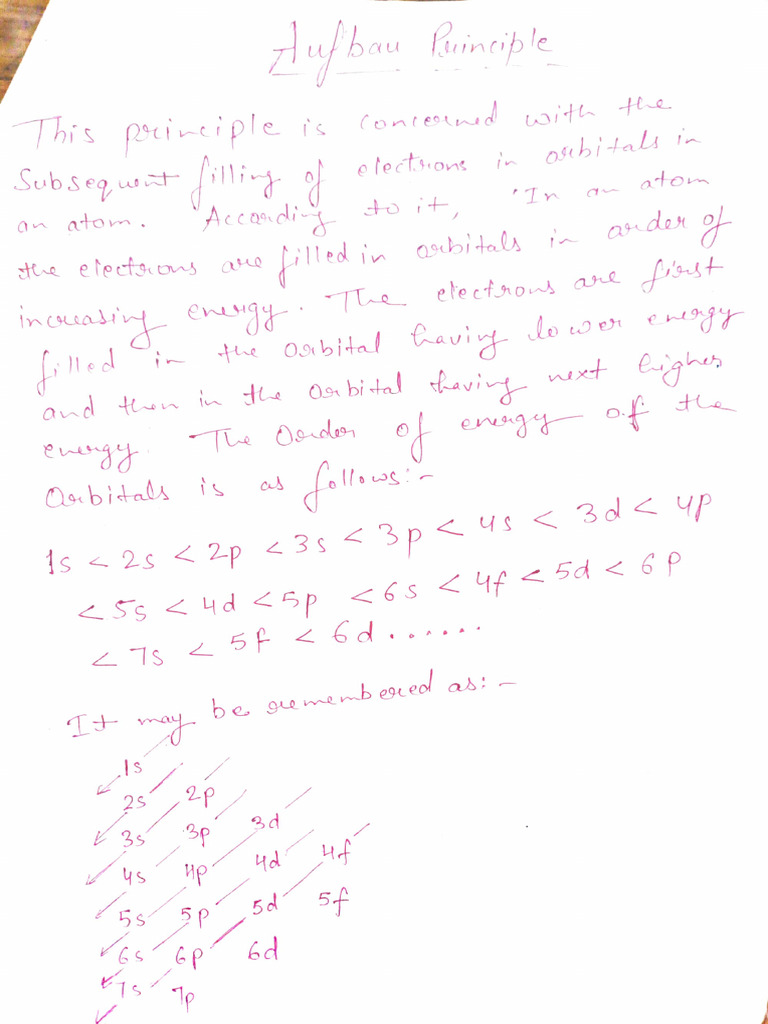 Aufbau Principle
This principle is concerned with the
Subsequent filling of electrons in orbitals in
an atom. According to it, 'In an atom
the electrons are filled in orbitals in order of
increasing energy. The electrons are first
filled in the orbital having lower energy
and then in the orbital having next higher
energy. The Order of energy of the
Orbitals is as follows:-
1s < 2s < 2p < 3s < 3p < 4s < 3d < 4p
< 5s < 4d < 5p < 6s < 4f < 5d < 6p
< 7s < 5f < 6d ......
It may be remembered as:-
1s
2s 2p
3s 3p 3d
4s 4p 4d 4f
5s 5p 5d 5f
6s 6p 6d
7s 7p